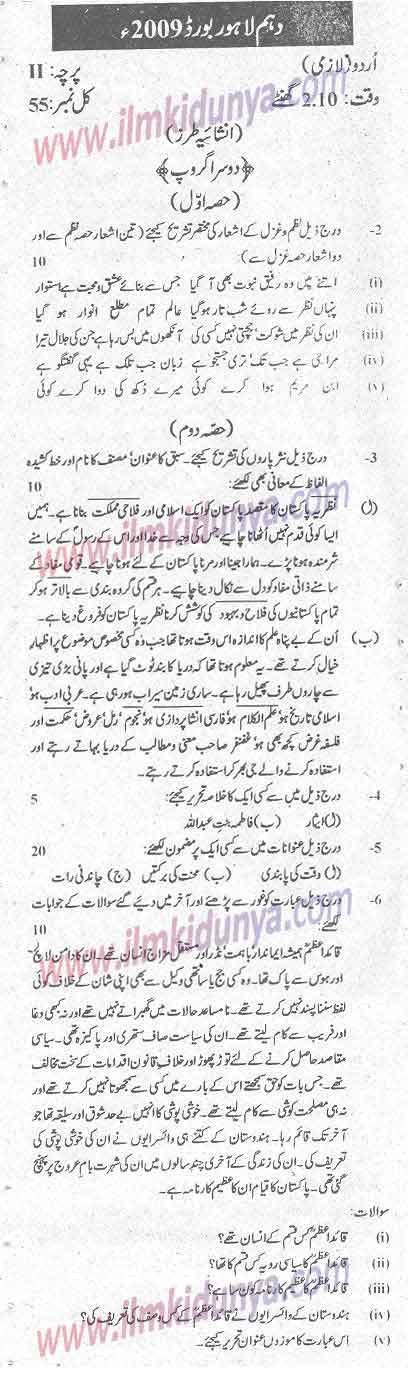 دہم لاہور بورڈ 2009ء
اُردو (لازمی) پرچہ: II
وقت: 2.10 گھنٹے کل نمبر: 55
(انشائیہ طرز)
﴿دوسرا گروپ﴾
(حصہ اوّل)
2- درج ذیل نظم و غزل کے اشعار کی مختصر تشریح کیجئے (تین اشعار حصہ نظم سے اور
دو اشعار حصہ غزل سے): 10
(i) اتنے میں وہ رفیقِ نبوت بھی آ گیا جس سے بنائے عشق و محبت ہے استوار
(ii) پنہاں نظر سے روئے شب تار ہو گیا عالم تمام مطلع انوار ہو گیا
(iii) ان کی نظر میں شوکت جچتی نہیں کسی کی آنکھوں میں بس رہا ہے جن کی جلال تیرا
(iv) مرا جی ہے جب تک تری جستجو ہے زبان جب تلک ہے یہی گفتگو ہے
(v) ابن مریم ہوا کرے کوئی میرے دکھ کی دوا کرے کوئی
(حصہ دوم)
3- درج ذیل نثر پاروں کی تشریح کیجئے۔ سبق کا عنوان، مصنف کا نام اور خط کشیدہ
الفاظ کے معانی بھی لکھئے: 10
(ا) نظریہ پاکستان کا مقصد پاکستان کو ایک اسلامی اور فلاحی مملکت بنانا ہے۔ ہمیں
ایسا کوئی قدم نہیں اٹھانا چاہیے جس کی وجہ سے خدا اور اس کے رسولؐ کے سامنے
شرمندہ ہونا پڑے۔ ہمارا جینا اور مرنا پاکستان کے لئے ہونا چاہیے۔ قومی مفاد کے
سامنے ذاتی مفاد کو دل سے نکال دینا چاہیے۔ ہر قسم کی گروہ بندی سے بالاتر ہو کر
تمام پاکستانیوں کی فلاح و بہبود کی کوشش کرنا نظریہ پاکستان کو فروغ دینا ہے۔
(ب) اُن کے بے پناہ علم کا اندازہ اس وقت ہوتا تھا جب وہ کسی مخصوص موضوع پر اظہارِ
خیال کرتے تھے۔ یہ معلوم ہوتا تھا کہ دریا کا بند ٹوٹ گیا ہے اور پانی بڑی تیزی
سے چاروں طرف پھیل رہا ہے۔ ساری زمین سیراب ہو رہی ہے۔ عربی ادب ہو
اسلامی تاریخ ہو، علم الکلام ہو، فارسی انشا پردازی ہو، نجوم، رمل، عروض، حکمت اور
فلسفہ غرض کچھ بھی ہو، غضنفر صاحب معنی و مطالب کے دریا بہاتے رہتے اور
استفادہ کرنے والے جی بھر کر استفادہ کرتے رہتے۔
4- درج ذیل میں سے کسی ایک کا خلاصہ تحریر کیجئے: 5
(ا) ایثار (ب) فاطمہ بنت عبداللہ
5- درج ذیل عنوانات میں سے کسی ایک پر مضمون لکھئے: 20
(ا) وقت کی پابندی (ب) محنت کی برکتیں (ج) چاندنی رات
6- درج ذیل عبارت کو غور سے پڑھئے اور آخر میں دیئے گئے سوالات کے جوابات
لکھئے: 10
قائداعظمؒ ہمیشہ ایماندار، باہمت، نڈر اور مستقل مزاج انسان تھے۔ ان کا دامن لالچ
اور ہوس سے پاک تھا۔ وہ کسی جج یا ساتھی وکیل سے بھی اپنی شان کے خلاف کوئی
لفظ سننا پسند نہیں کرتے تھے۔ نامساعد حالات میں گھبراتے نہیں تھے اور نہ کبھی دغا
اور فریب سے کام لیتے تھے۔ ان کی سیاست صاف ستھری اور پاکیزہ تھی۔ سیاسی
مقاصد حاصل کرنے کے لئے توڑ پھوڑ اور خلافِ قانون اقدامات کے سخت مخالف
تھے۔ جس بات کو حق سمجھتے اس کے بارے میں کسی سے سمجھوتا نہیں کرتے تھے اور
نہ ہی مصلحت کوشی سے کام لیتے تھے۔ خوش پوشی کا انہیں بے حد شوق اور سلیقہ تھا جو
آخر تک قائم رہا۔ ہندوستان کے کتنے ہی وائسرایوں نے ان کی خوش پوشی کی
تعریف کی۔ ان کی زندگی کے آخری چند سالوں میں ان کی شہرت بامِ عروج پر پہنچ
گئی تھی۔ پاکستان کا قیام ان کا عظیم کارنامہ ہے۔
سوالات:
(i) قائداعظمؒ کس قسم کے انسان تھے؟
(ii) قائداعظمؒ کا سیاسی رویہ کس قسم کا تھا؟
(iii) قائداعظمؒ کا عظیم کارنامہ کون سا ہے؟
(iv) ہندوستان کے وائسرایوں نے قائداعظمؒ کے کس وصف کی تعریف کی؟
(v) اس عبارت کا موزوں عنوان تحریر کیجئے۔
www.ilmkidunya.com
www.ilmkidunya.com
www.ilmkidunya.com
www.ilmkidunya.com
www.ilmkidunya.com